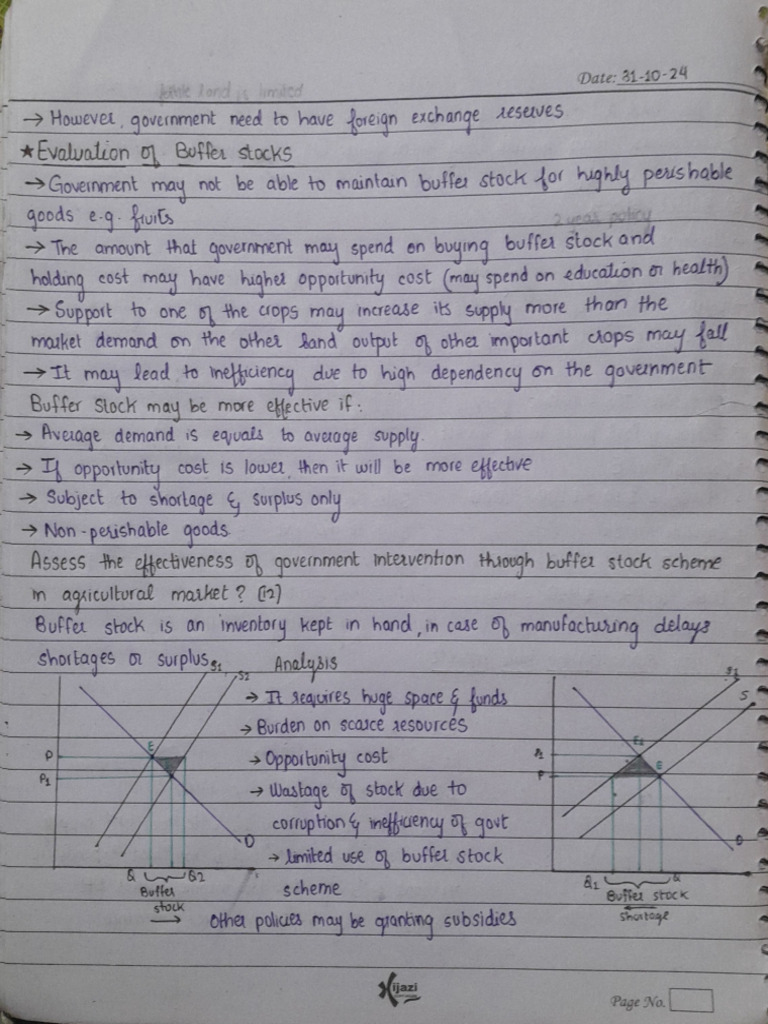 Date: 31-10-24
→ However, government need to have foreign exchange reserves
★ Evaluation of Buffer stocks
→ Government may not be able to maintain buffer stock for highly perishable
goods e.g. fruits
→ The amount that government may spend on buying buffer stock and
holding cost may have higher opportunity cost (may spend on education or health)
→ Support to one of the crops may increase its supply more than the
market demand on the other hand output of other important crops may fall
→ It may lead to inefficiency due to high dependency on the government
Buffer Stock may be more effective if:
→ Average demand is equals to average supply.
→ If opportunity cost is lower then it will be more effective
→ Subject to shortage & surplus only
→ Non-perishable goods
Assess the effectiveness of government intervention through buffer stock scheme
in agricultural market? (12)
Buffer stock is an inventory kept in hand, in case of manufacturing delays
shortages or surplus.
Analysis
S1
S2
E
P
P1
D
Q
Q2
Buffer
stock
→
→ It requires huge space & funds
→ Burden on scarce resources
→ Opportunity cost
→ Wastage of stock due to
corruption & inefficiency of govt
→ limited use of buffer stock
scheme
S1
S
E1
E
P1
P
D
Q1
Q
Buffer stock
←
shortage
Other policies may be granting subsidies
Hijazi
Page No.